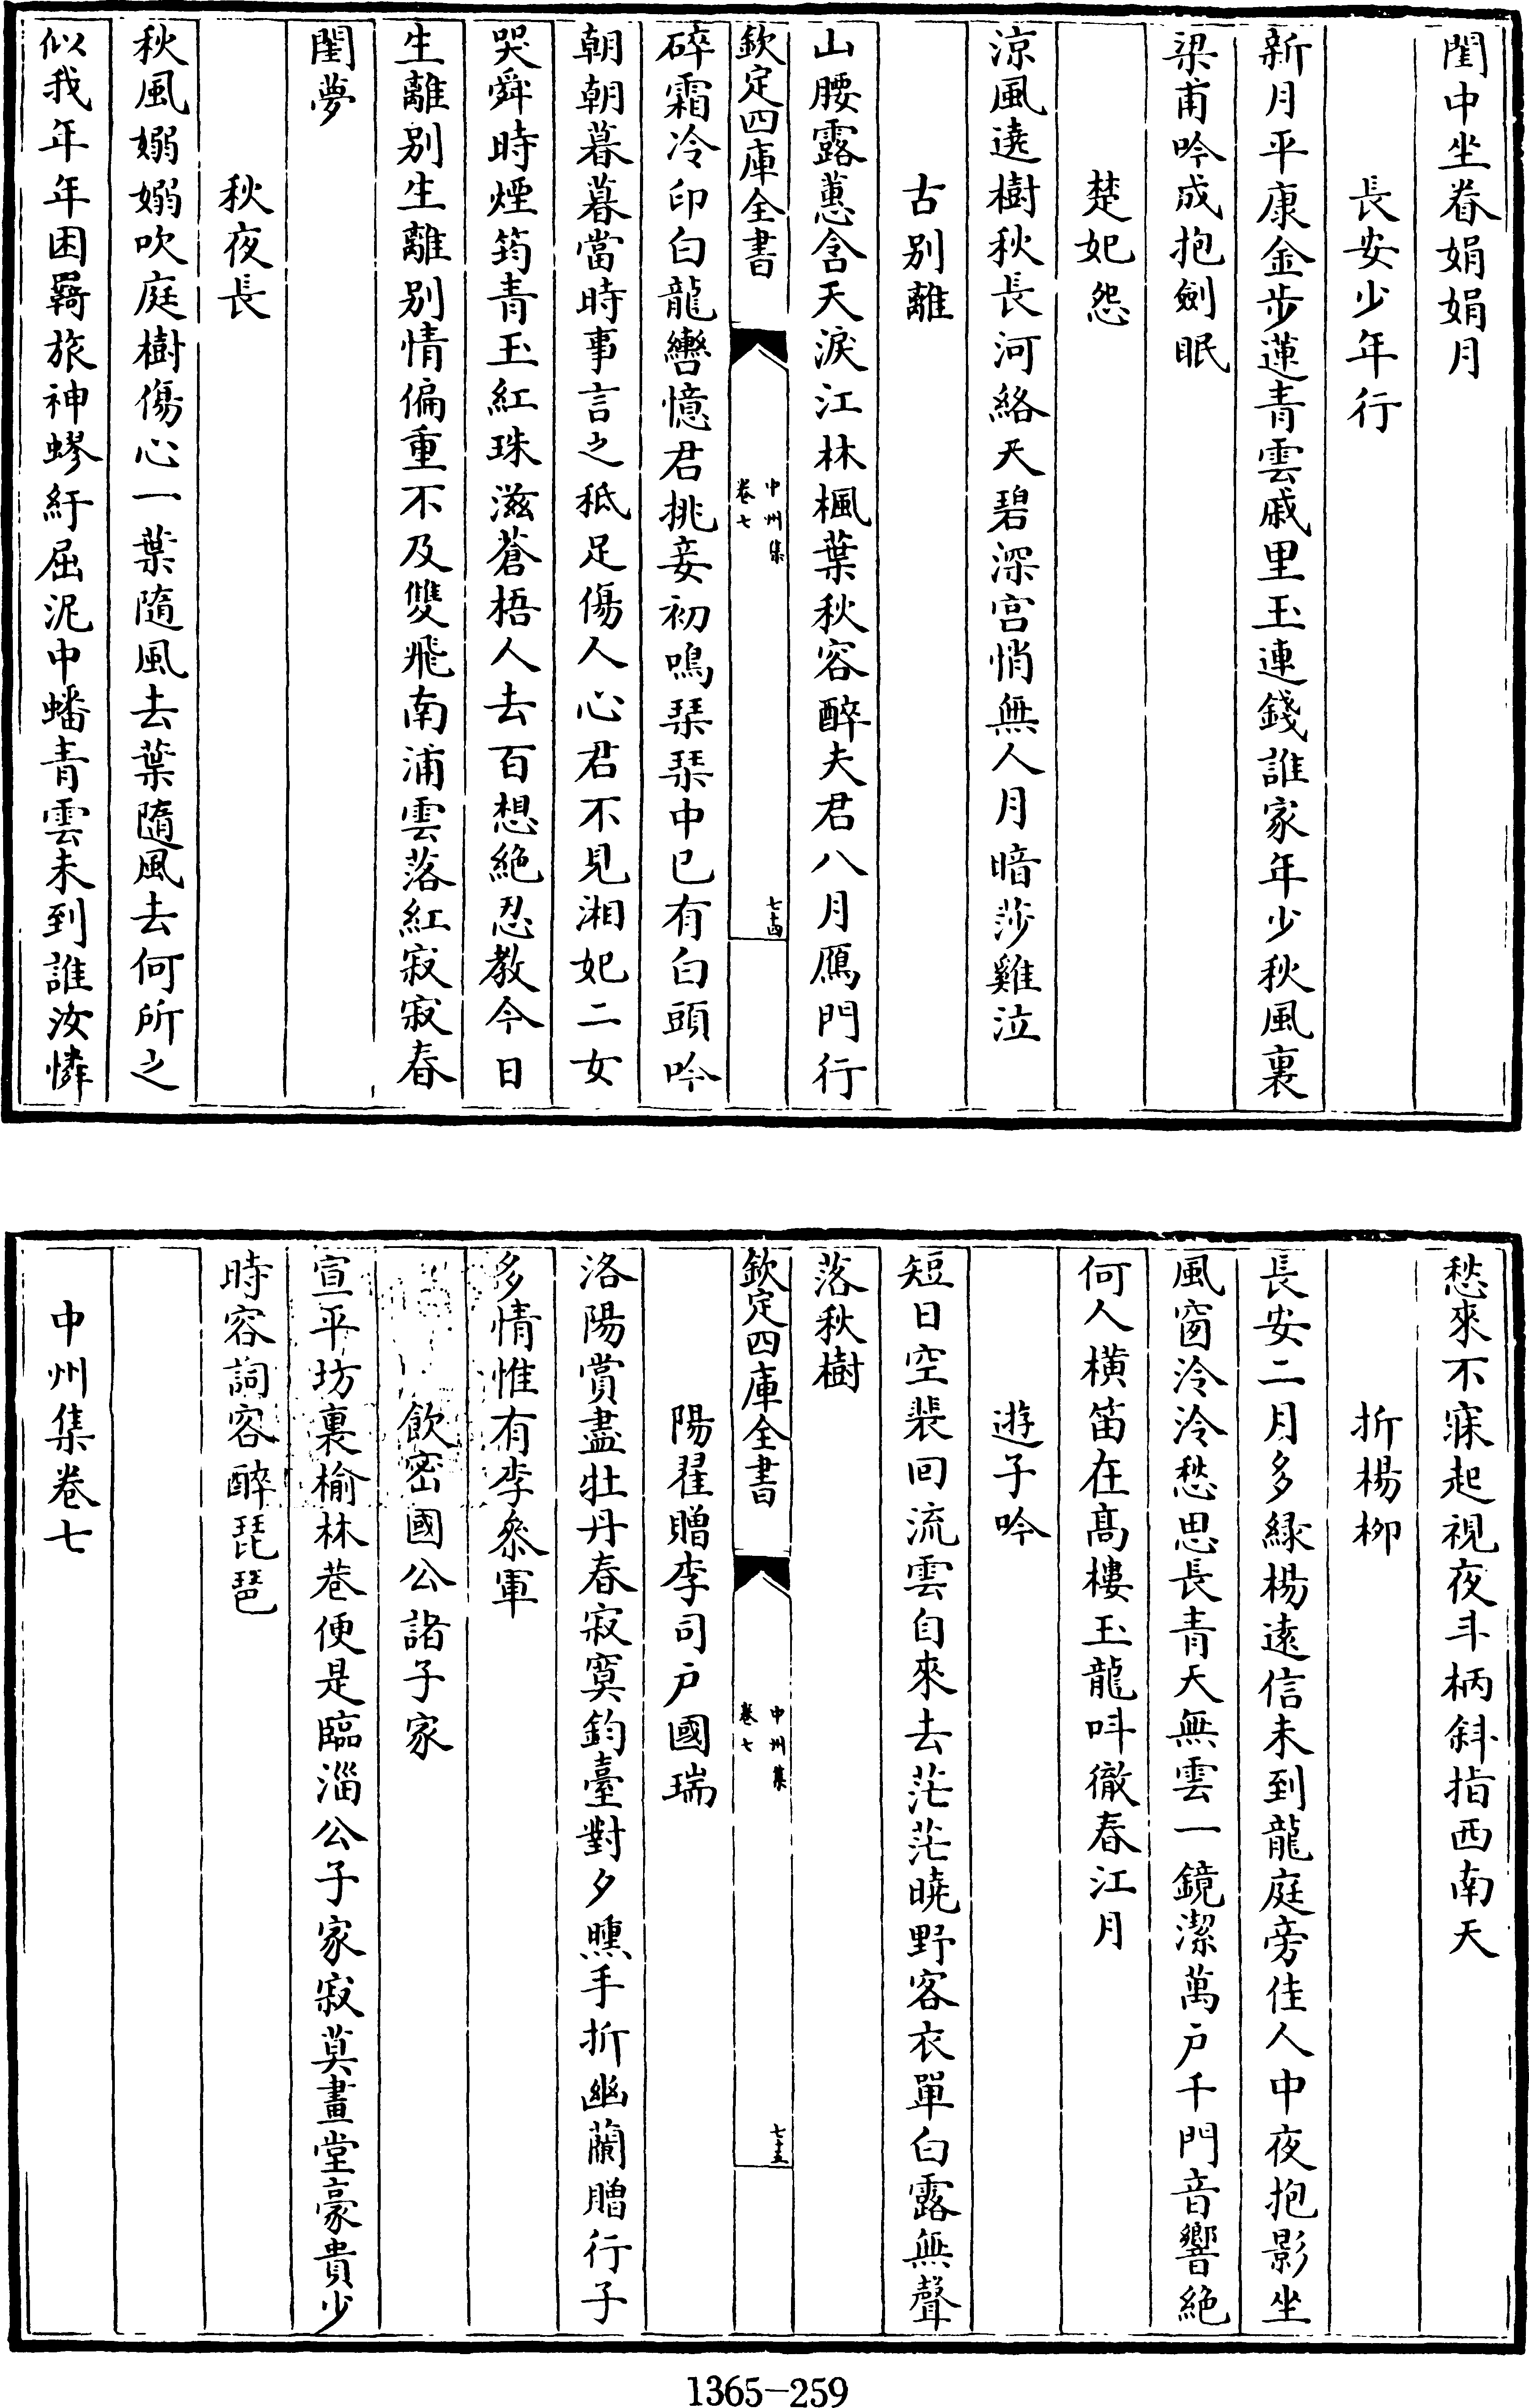 閨中坐眷娟娟月
長安少年行
新月平康金步蓮青雲戚里玉連錢誰家年少秋風裏
梁甫吟成抱劍眠
楚妃怨
涼風遶樹秋長河絡天碧深宫悄無人月暗莎雞泣
古别離
山腰露蕙含天淚江林楓葉秋容醉夫君八月鴈門行
欽定四庫全書
中州集
卷七
七十四
碎霜冷印白龍轡憶君挑妾初鳴琹琹中已有白頭吟
朝朝暮暮當時事言之秪足傷人心君不見湘妃二女
哭舜時煙筠青玉紅珠滋蒼梧人去百想絶忍教今日
生離别生離别情偏重不及雙飛南浦雲落紅寂寂春
閨夢
秋夜長
秋風嫋嫋吹庭樹傷心一葉隨風去葉隨風去何所之
似我年年困羇旅神蟉紆屈泥中蟠青雲未到誰汝憐
愁來不寐起視夜斗柄斜指西南天
折楊柳
長安二月多緑楊逺信未到龍庭旁佳人中夜抱影坐
風窗泠泠愁思長青天無雲一鏡潔萬户千門音響絶
何人横笛在髙樓玉龍呌徹春江月
遊子吟
短日空裴回流雲自來去茫茫曉野客衣單白露無聲
落秋樹
欽定四庫全書
中州集
卷七
七十五
陽翟贈李司户國瑞
洛陽賞盡牡丹春寂寞鈞臺對夕曛手折幽蘭贈行子
多情惟有李叅軍
飲密國公諸子家
宣平坊裏榆林巷便是臨淄公子家寂莫畫堂豪貴少
時容詞客醉琵琶
中州集卷七
1365-259